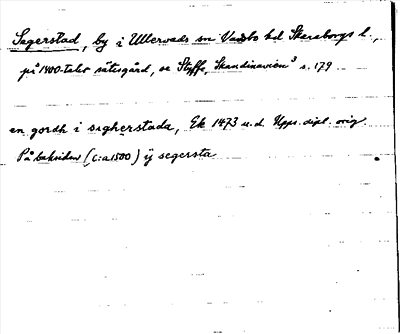 Sagerstad, by i Ullervads sn Vadsbo hd Skaraborgs l.,
på 1400-talet sätesgård, se Styffe, Skandinavien³ s. 179
en gordh i sagherstada, Ek 1473 u.d. Upps. dipl. orig.
På baksidan (c:a 1500) ij segersta